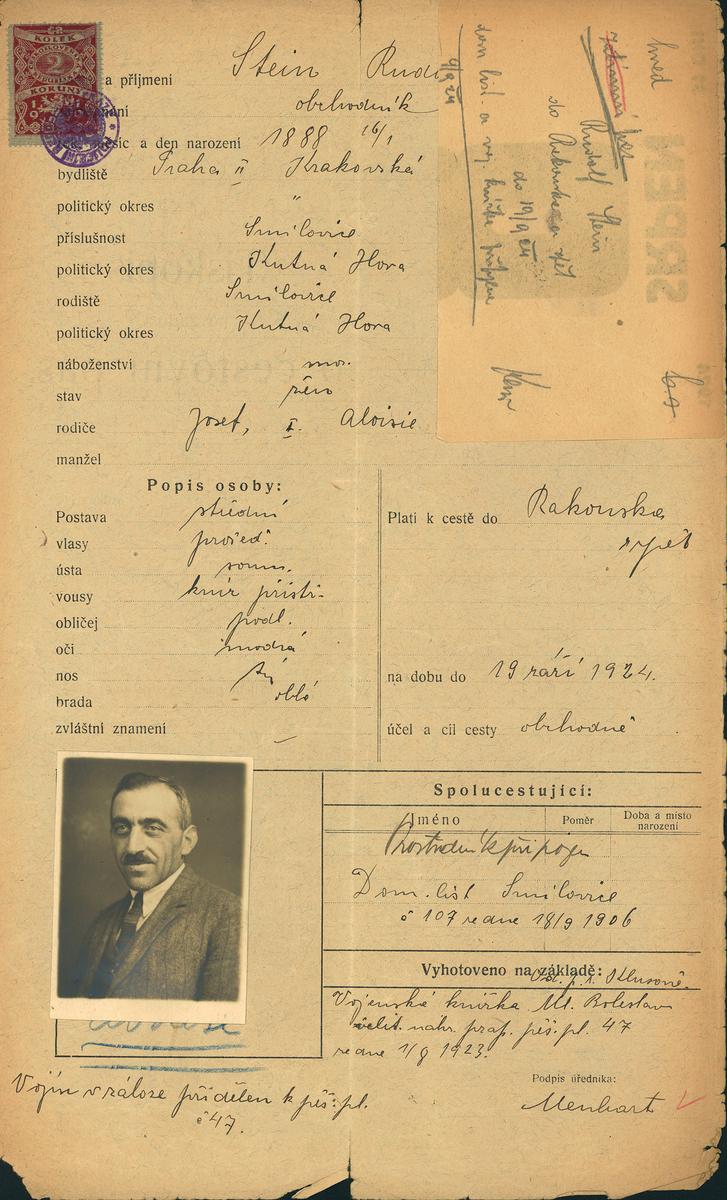 KOLEK
2
KORUNY
a příjmení Stein Rud
obchodník
a den narození 1888 16/1
bydliště Praha II Krakovská
politický okres "
příslušnost Smilovice
politický okres Kutná Hora
rodiště Smilovice
politický okres Kutná Hora
náboženství
stav žen
rodiče Josef, Aloisie
manžel
Popis osoby:
Postava střední
vlasy prošed.
ústa soum.
vousy knír přistř.
obličej podl.
oči modrá
nos
brada oblá
zvláštní znamení –
hned
Rudolf Stein
do Rakouska a zpět
do 19/9 24
dom. list. a voj. knížka
9/9 24
SRPEN
Platí k cestě do Rakouska
a zpět
na dobu do 19 září 1924.
účel a cíl cesty obchodně
Spolucestující:
Jméno
Poměr
Doba a místo narození
Dom. list Smilovice
č 107 ze dne 18/9 1906
Vyhotoveno na základě:
Vojenská knížka Ml. Boleslav
velit. náhr. prap. pěš. pl. 47
ze dne 1/9 1923.
Podpis úředníka:
Menhart
Vojín v záloze přidělen k pěš. pl.
č 47.